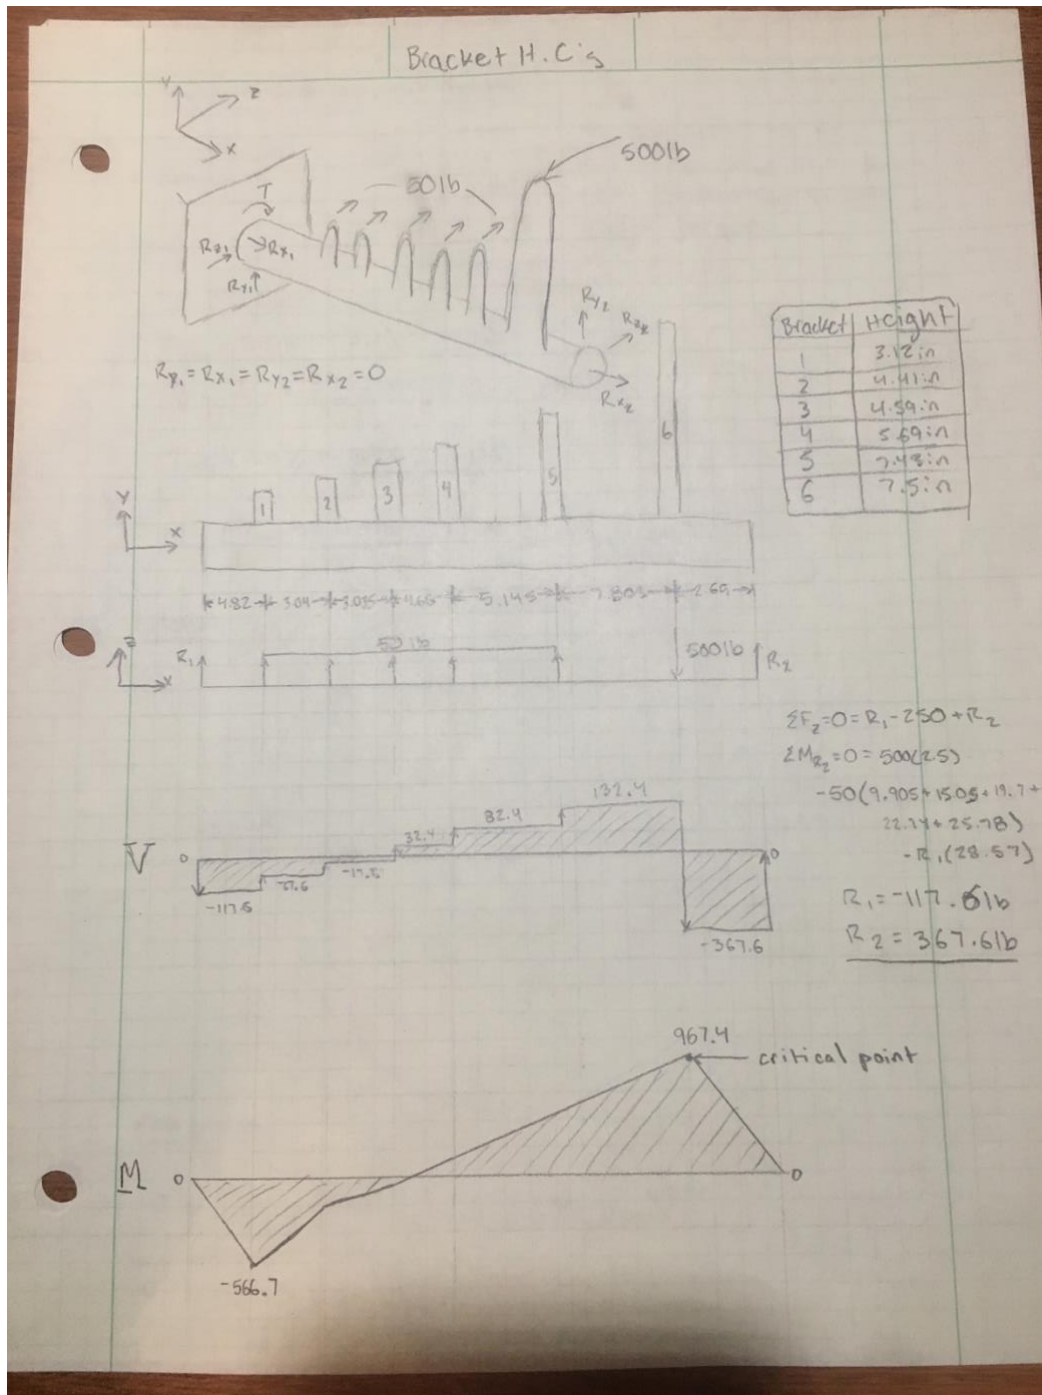 Bracket H.C's
Y
Z
X
500lb
50lb
T
Rx₁
Ry₁
Ry₂
Rx₂
= Rx₁ = Ry₂ = Rx₂ = 0
Bracket Height
1 3.12in
2 4.41in
3 4.59in
4 5.69in
5 7.43in
6 7.5in
1 2 3 4 5 6
Y
X
4.82 3.04 4.65 5.145 2.65
Z
X
R₁
50 lb
500lb
R₂
ΣF_z=0=R₁-250+R₂
ΣM_R₂=0=500(2.5)
-50(9.905+15.05+19.7+
22.74+25.78)
-R₁(28.57)
R₁=-117.6lb
R₂=367.6lb
V
0
-117.6
-17.6
32.4
82.4
132.4
-367.6
0
967.4
critical point
M
0
0
-566.7